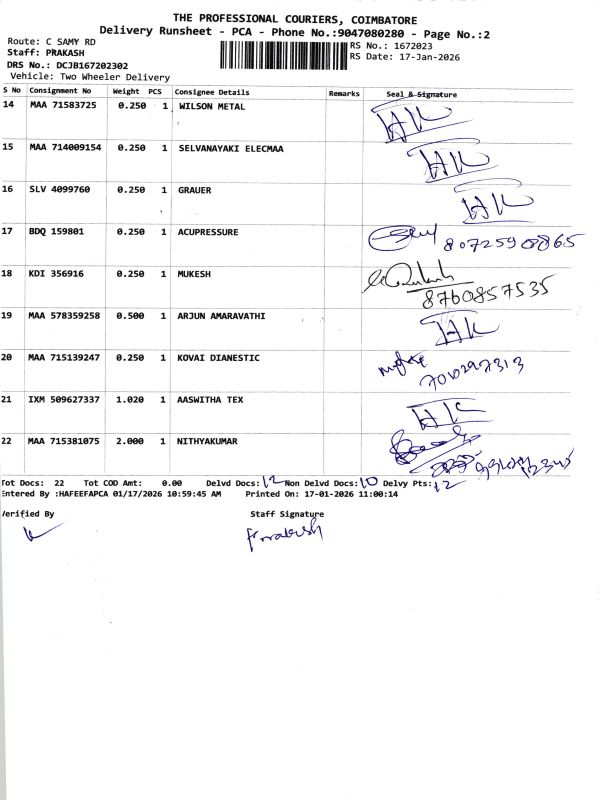 THE PROFESSIONAL COURIERS, COIMBATORE
Delivery Runsheet - PCA - Phone No.:9047080280 - Page No.:2
Route: C SAMY RD
Staff: PRAKASH
DRS No.: DCJB167202302
Vehicle: Two Wheeler Delivery
RS No.: 1672023
RS Date: 17-Jan-2026
S No Consignment No Weight PCS Consignee Details Remarks Seal & Signature
14 MAA 71583725 0.250 1 WILSON METAL HK
15 MAA 714009154 0.250 1 SELVANAYAKI ELECMAA HK
16 SLV 4099760 0.250 1 GRAUER HK
17 BDQ 159801 0.250 1 ACUPRESSURE 8072590865
18 KDI 356916 0.250 1 MUKESH 8760857535
19 MAA 578359258 0.500 1 ARJUN AMARAVATHI HK
20 MAA 715139247 0.250 1 KOVAI DIANESTIC 7010297313
21 IXM 509627337 1.020 1 AASWITHA TEX HK
22 MAA 715381075 2.000 1 NITHYAKUMAR
Tot Docs: 22 Tot COD Amt: 0.00 Delvd Docs: 12 Non Delvd Docs: 10 Delvy Pts: 12
Entered By :HAFEEFAPCA 01/17/2026 10:59:45 AM Printed On: 17-01-2026 11:00:14
Verified By Staff Signature
Prakash